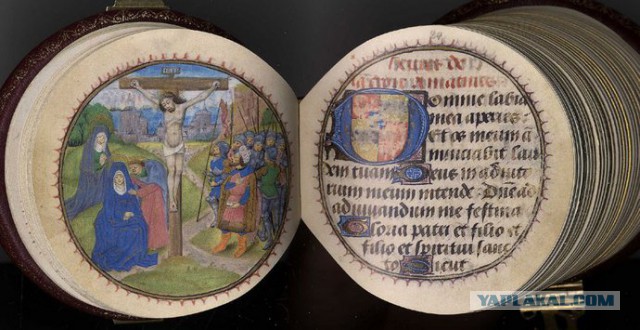 INRI
heures de l
croix a matines
Domine labia
mea aperies:
Et os meum a
nunciabit lau
dem tuam Deus in adiuto
rium meum intende Dne ad
adiuuandum me festina
Gloria patri et filio et
filio et spiritui sanc
to Sicut
YAPLAKAL.COM